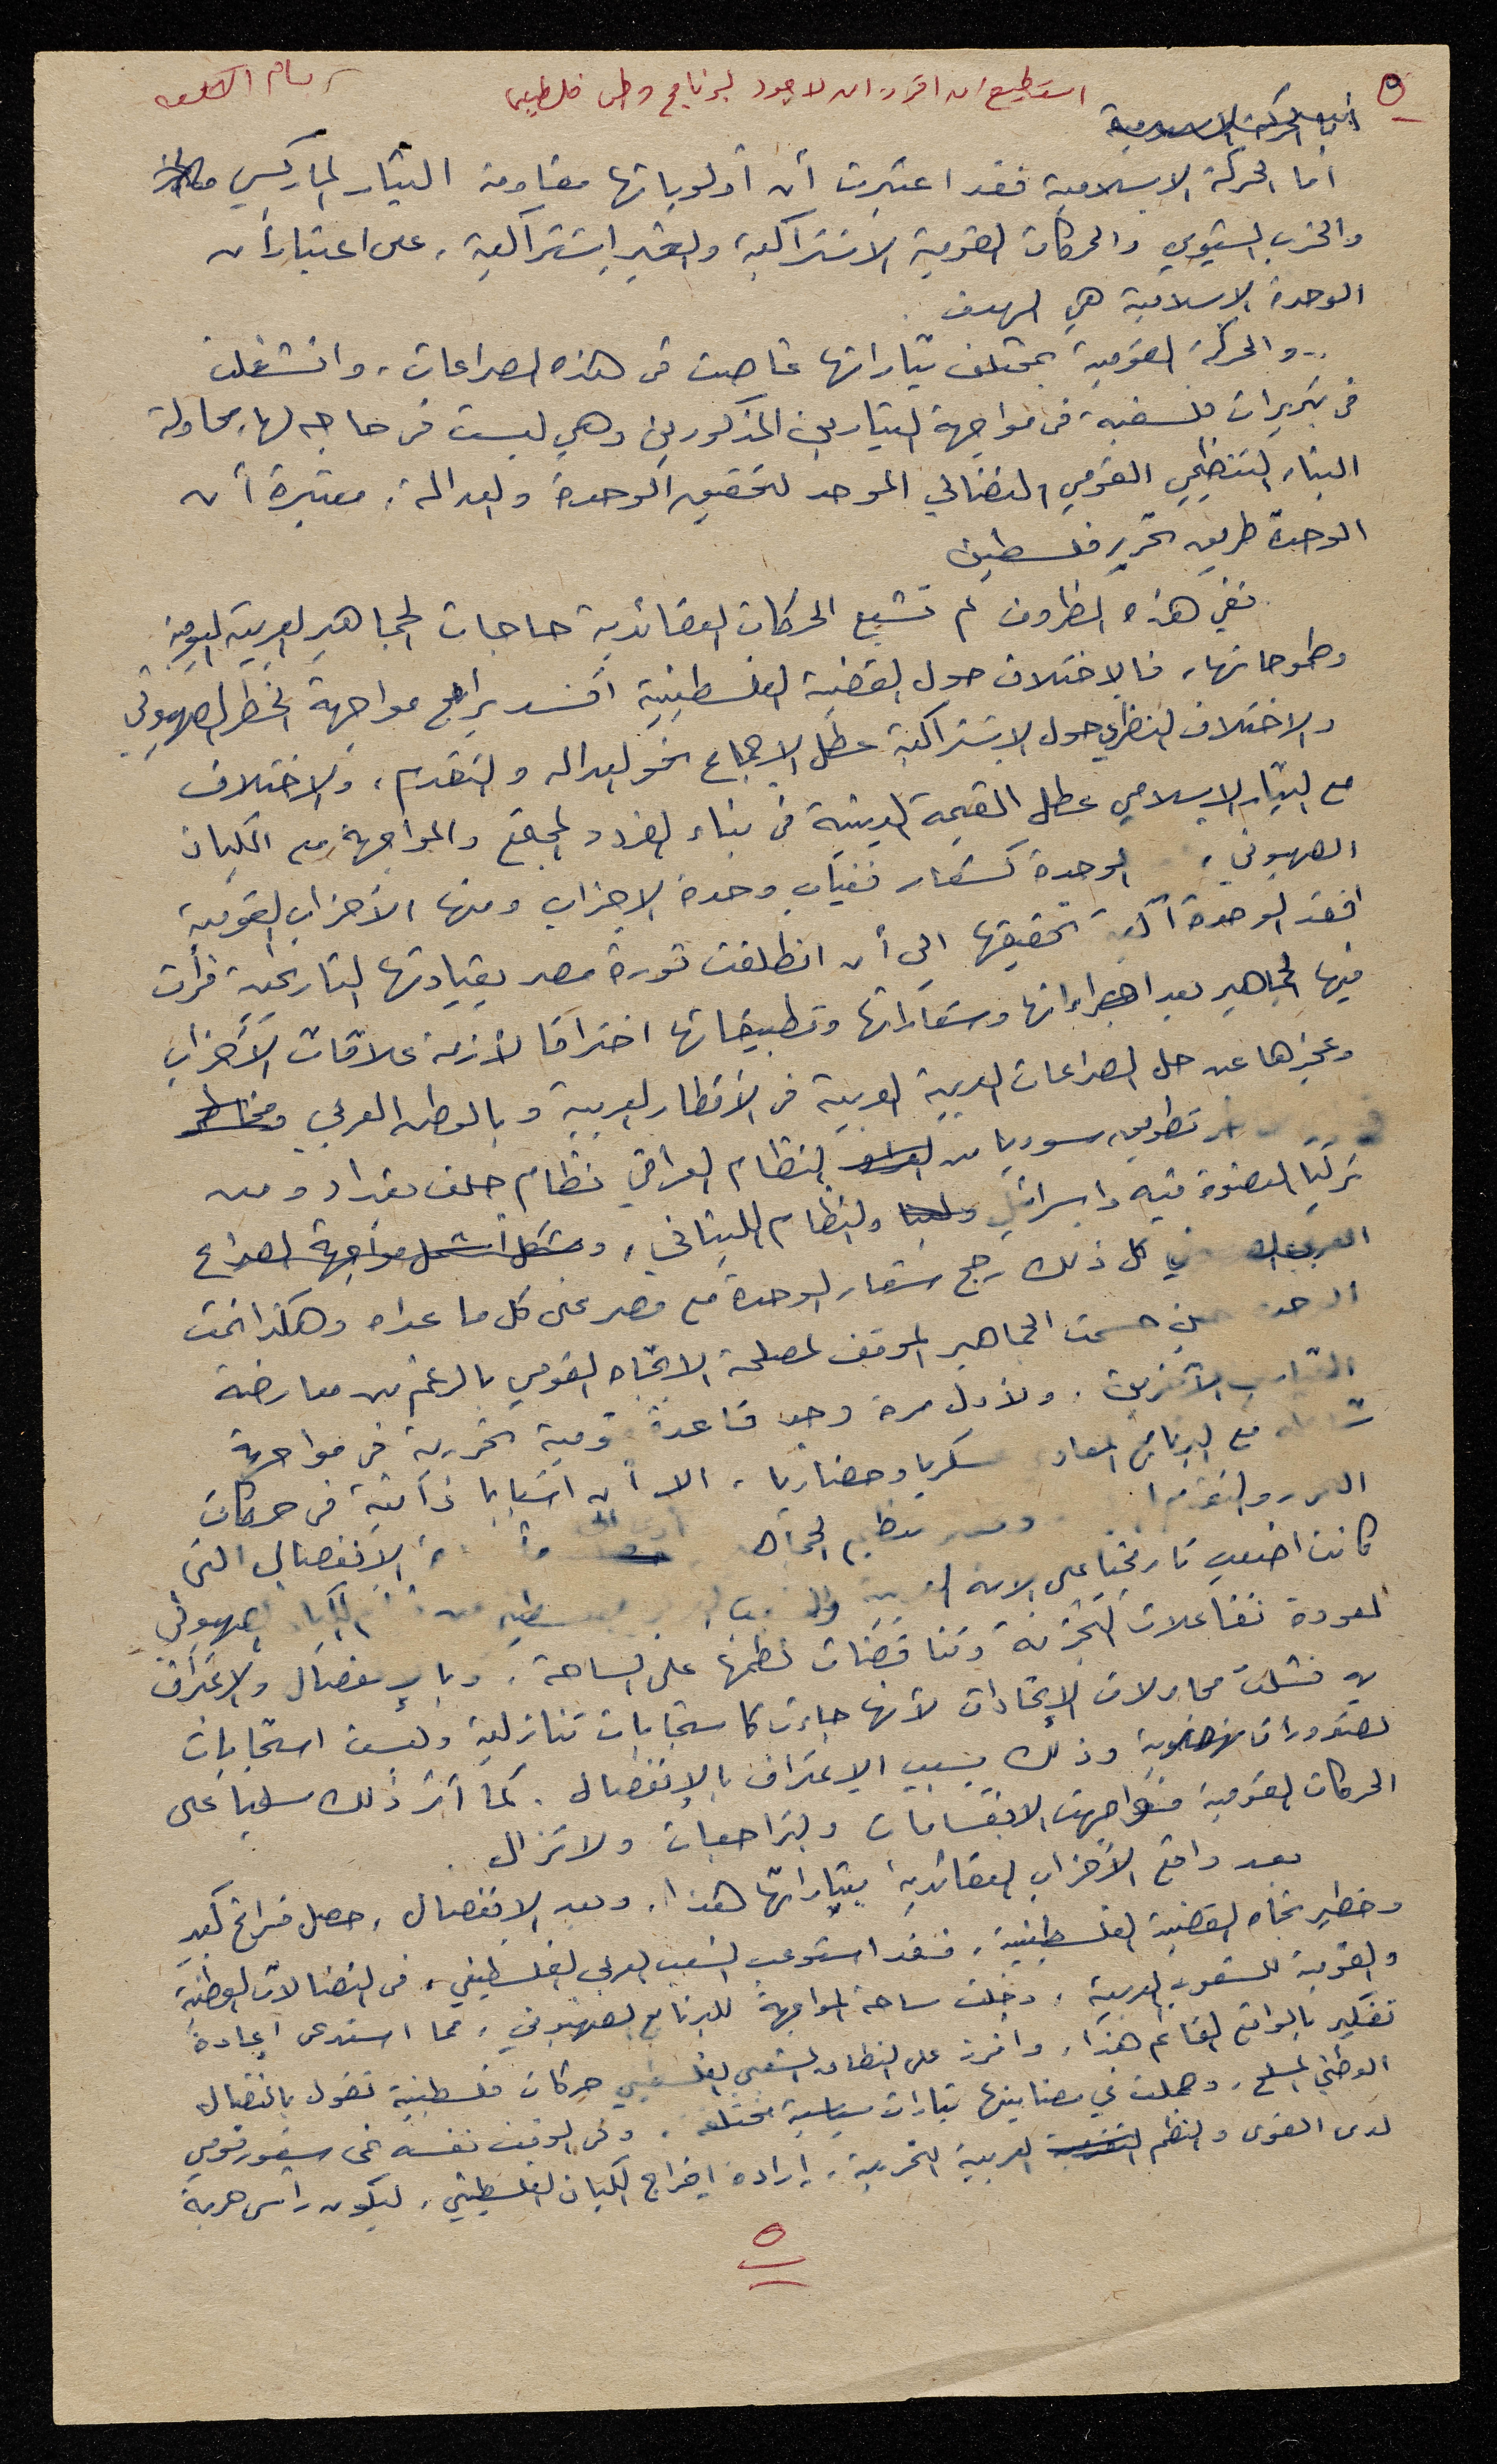 ٥
استطيع ان اقرر ان لا وجود لبرنامج وطني فلسطيني
أما الحركة الاسلامية
أما الحركة الاسلامية فقد اعتبرت أن أولوياتها مقاومة التيار الماركسي
والحزب الشيوعي والحركات القومية الاشتراكية والغير اشتراكية، على اعتبار أن
الوحدة الاسلامية هي الهدف.
.. والحركة القومية بمختلف تياراتها غاصت في هذه الصراعات، وانشغلت
في تبريرات فلسفية في مواجهة التيارين المذكورين وهي ليست في حاجه لها، محاولة
البناء التنظيمي القومي النضالي الموحد لتحقيق الوحدة والعدالة، معتبرة أن
الوحدة طريق تحرير فلسطين
ففي هذه الظروف لم تشبع الحركات العقائدية حاجات الجماهير العربية اليومية
وطموحاتها، فالاختلاف حول القضية الفلسطينية أفسد برامج مواجهة الخطر الصهيوني
والاختلاف النظري حول الاشتراكية عطل الاجماع نحو العداله والتقدم، والاختلاف
مع التيار الاسلامي عطل القيمة الدينية في بناء الفرد والمجتمع والمواجهة مع الكيان
الصهيوني، الوحدة كشعار فغياب وحدة الاحزاب ومنها الأحزاب القومية
افقد الوحدة آلية تحقيقها الى أن انطلقت ثورة مصر بقيادتها التاريخية فرأت
فيها الجماهير بعد اجراءاتها وشعاراتها وتطبيقاتها اختراقا لأزمة علاقات الأحزاب
وعجزها عن حل الصراعات العربية العربية في الأقطار العربية وبالوطن العربي
تطويق سوريا من النظام العراقي نظام حلف بغداد ومن
تركيا العضوة فيه واسرائيل والنظام اللبناني، وشكل أشمل مواجهة الصراع
كل ذلك رجح شعار الوحدة مع مصر على كل ما عداه وهكذا تمت
حين حسمت الجماهير الموقف لمصلحة الاتجاه القومي بالرغم من معارضة
الآخرين. ولأول مرة وجد قاعدة قومية تحررية في مواجهة
مع البرنامج المعادي عسكريا وحضاريا، الا أن اسبابا ذاتية في حركات
الانفصال التي
كانت اصعب تاريخيا على الامة
العودة تفاعلات التجزئة وتناقضات نظمها على الساحة. وبالانفصال والاعتراف
به فشلت محاولات الاتحادات لأنها جاءت كاستجابات تنازلية وليست استجابات
وذلك بسبب الاعتراف بالانفصال. كما أثر ذلك سلبيا على
الحركات القومية فواجهت الانقسامات والتراجعات ولا تزال.
بعد واقع الأحزاب العقائدية بتياراتها هذا. وبعد الانفصال، حصل فراغ كبير
وخطير تجاه القضية الفلسطينية، فقد استوعب الشعب العربي الفلسطيني، في النضالات الوطنية
والقومية للشعوب العربية، وخلت ساحة المواجهة للبرنامج الصهيوني، مما استدعى اعادة
تفكير بالواقع القائم هذا، وافرز على النطاق الشعبي الفلسطيني حركات فلسطينية تقول بالنضال
الوطني المسلح، وحملت في مضامينها تيارات سياسية مختلفة. وفي الوقت نفسه نمى شعور قومي
لدى القوى والنظم العربية التحررية، إرادة اخراج الكيان الفلسطيني، ليكون رأس حربة
٥